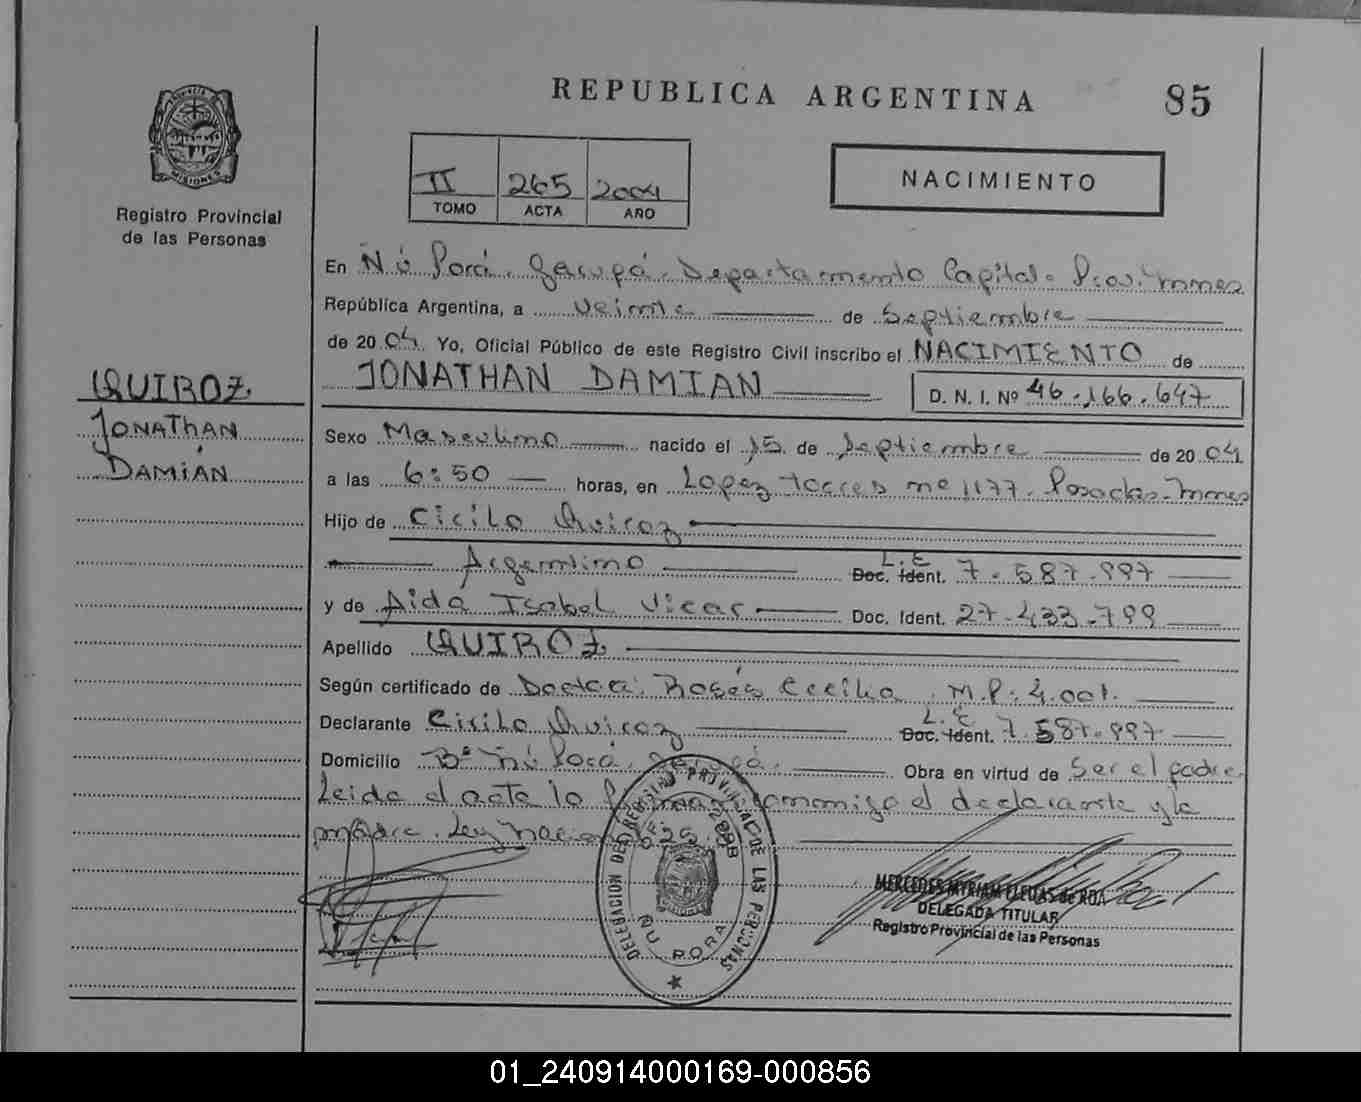 REPUBLICA ARGENTINA 85
PROVINCIA DE MISIONES
Registro Provincial
de las Personas
II 265 2004
TOMO ACTA AÑO
NACIMIENTO
En Ñú Porá. Garupá. Departamento Capital. Prov. Mnes
República Argentina, a veinte de Septiembre
de 2004. Yo, Oficial Público de este Registro Civil inscribo el NACIMIENTO de
JONATHAN DAMIAN D. N. I. Nº 46.166.647
QUIROZ
JONATHAN
DAMIÁN
Sexo Masculino nacido el 15 de Septiembre de 2004
a las 6:50 horas, en Lopez torres nº 1177. Posadas. Mnes
Hijo de Cicilo Quiroz
Argentino L.E Doc. Ident. 7.587.997
y de Aida Isabel Vicar Doc. Ident. 27.433.799
Apellido QUIROZ
Según certificado de Doctora: Rosés Cecilia. M.P: 4.001.
Declarante Cicilo Quiroz L.E Doc. Ident. 7.587.997
Domicilio Bº Ñú Porá. Garupá. Obra en virtud de Ser el padre
Leida el acta lo firman conmigo el declarante y la
madre. Ley Nacional
DELEGACION DEL REGISTRO PROVINCIAL DE LAS PERSONAS
ÑU PORA
MERCEDES MYRIAM de ROA
DELEGADA TITULAR
Registro Provincial de las Personas
01_240914000169-000856